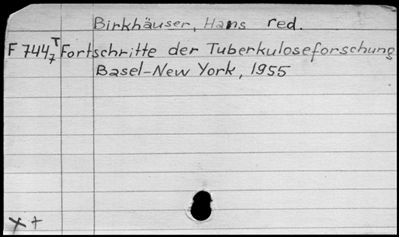 Birkhäuser, Hans red.
F 744/7 T Fortschritte der Tuberkuloseforschung
Basel-New York, 1955
x +